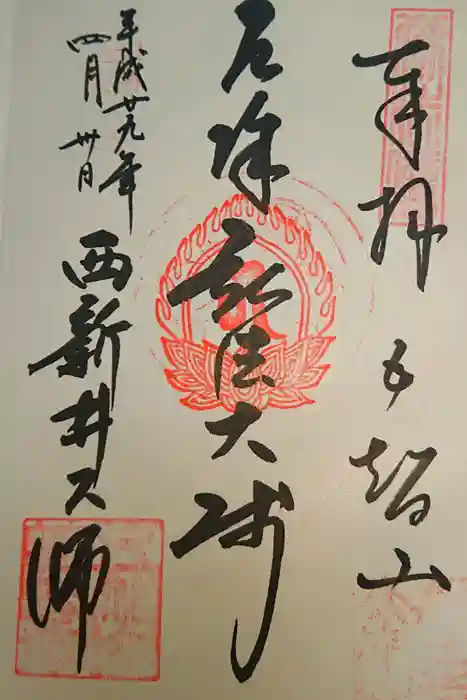 奉拝 五智山
厄除 弘法大師
西新井大師
平成廿九年
四月卅日